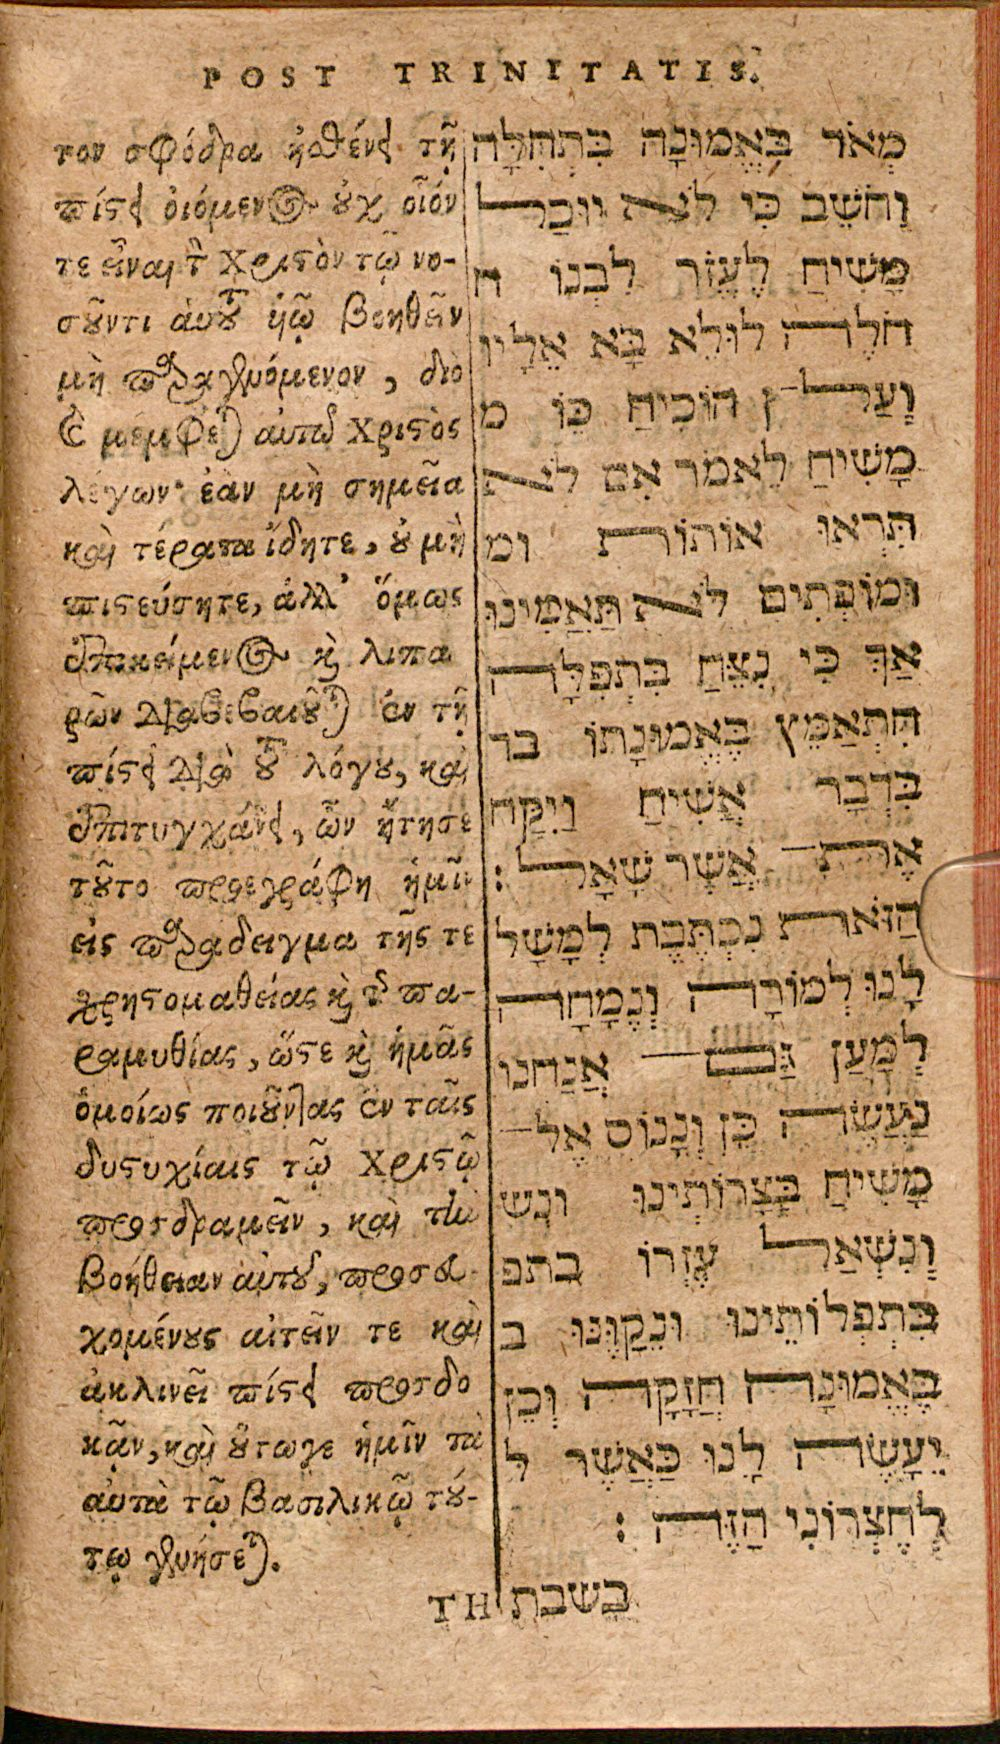 POST TRINITATIS.
τον σφόδρα ἠσθένει τῇ
πίστει οἰόμενος οὐχ οἷόν
τε εἶναι τὸν Χριστὸν τῷ νο-
σοῦντι αὐτοῦ υἱῷ βοηθεῖν
μὴ παραγενόμενον, διὸ
καὶ μέμφεται αὐτῷ Χριστὸς
λέγων· ἐὰν μὴ σημεῖα
καὶ τέρατα ἴδητε, οὐ μὴ
πιστεύσητε, ἀλλ' ὅμως
ἐπικείμενος καὶ λιπα
ρῶν διαβεβαιοῦται ἐν τῇ
πίστει διὰ τοῦ λόγου, καὶ
ἐπιτυγχάνει, ὧν ᾔτησε
τοῦτο προεγράφη ἡμῖν
εἰς παράδειγμα τῆς τε
χρηστομαθείας καὶ τῆς πα-
ραμυθίας, ὥστε καὶ ἡμᾶς
ὁμοίως ποιοῦντας ἐν ταῖς
δυστυχίαις τῷ Χριστῷ
προσδραμεῖν, καὶ τὴν
βοήθειαν αὐτοῦ, προσευ
χομένους αἰτεῖν τε καὶ
ἀκλινεῖ πίστει προσδο
κᾶν, καὶ οὕτωγε ἡμῖν τὰ
αὐτὰ τῷ βασιλικῷ τού-
τῳ γενήσεται.
ΤΗ
מְאֹד בֶּאֱמוּנָה בִּתְחִלָּה
וְחֹשֵׁב כִּי לֹא יוּכַל
מָשִׁיחַ לַעֲזֹר לִבְנוֹ ח
חֹלֶה לוּלֵא בָּא אֵלָיו
וְעַל־ן הוֹכִיחַ בּוֹ מ
מָשִׁיחַ לֵאמֹר אִם לֹא
תִּרְאוּ אוֹתוֹת ומ
וּמוֹפְתִים לֹא תַּאֲמִינוּ
אַךְ כִּי נִצַּח בִּתְפִלָּה
הִתְאַמֵּץ בֶּאֱמוּנָתוֹ בד
בִּדְבָר מָשִׁיחַ וַיִּקַּח
אֶת־ אֲשֶׁר שָׁאָל:
הַזֹּאת נִכְתֶּבֶת לְמָשָׁל
לָנוּ לְמוֹרָה וְנֶחָמָה
לְמַעַן גַּם־ אֲנַחְנוּ
נַעֲשֶׂה כֵן וְנָנוּס אֶל־
מָשִׁיחַ בְּצָרוֹתֵינוּ ונש
וְנִשְׁאַל עֶזְרוֹ בתפ
בִּתְפִלּוֹתֵינוּ וּנְקַוֶּנּוּ ב
בֶּאֱמוּנָה חֲזָקָה וְכֵן
יֵעָשֶׂה לָנוּ כַּאֲשֶׁר ל
לְחֶצְרוֹנִי הַזֶּה:
בשבת